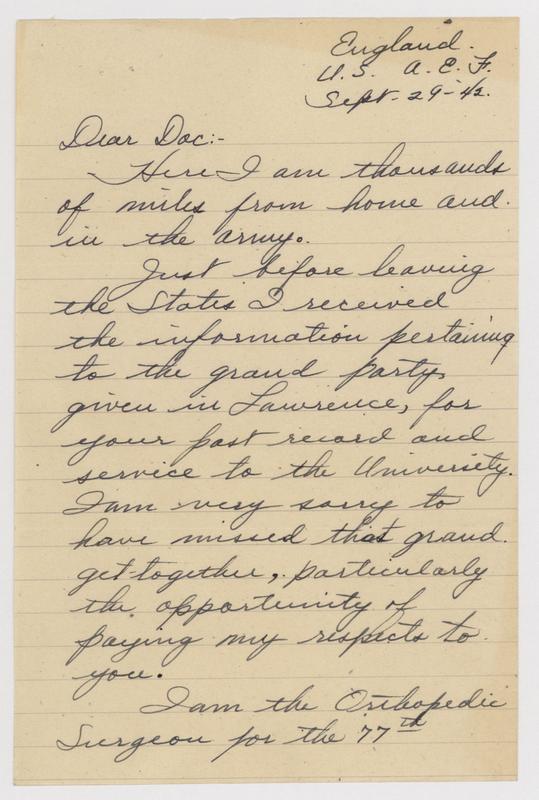 England.
U.S. A.E.F.
Sept-29-42.
Dear Doc:-
Here I am thousands
of miles from home and.
in the army.
Just before leaving
the States I received
the information pertaining
to the grand party,
given in Lawrence, for
your past record and
service to the University.
I am very sorry to
have missed that grand.
get-together, particularly
the opportunity of
paying my respects to
you.
I am the Orthopedic
Surgeon for the 77th